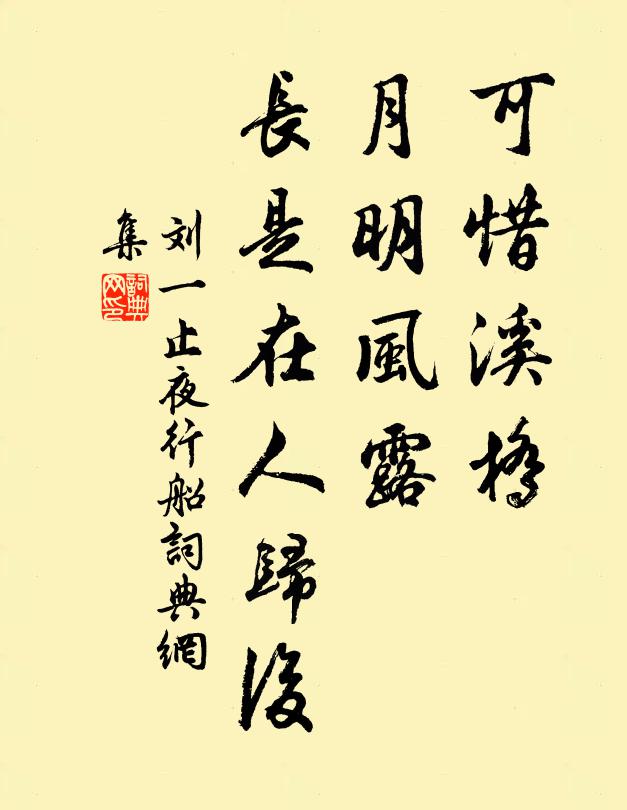 可惜溪橋
月明風露
長是在人歸後
刘一止夜行船詞典網
集
詞典
网印